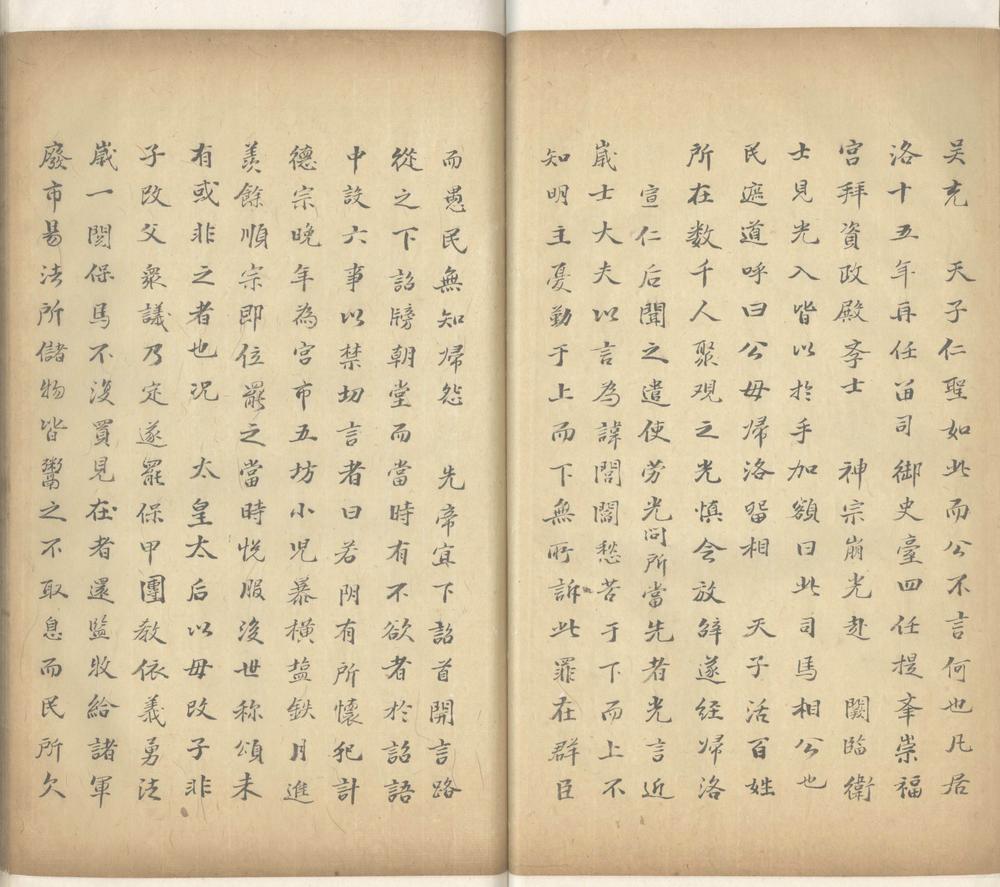 吴充　天子仁聖如此而公不言何也凡居
洛十五年再任畄司御史臺四任提举崇福
宫拜資政殿斈士　神宗崩光赴　闕臨衛
士見光入皆以於手加額曰此司馬相公也
民遮道呼曰公毋帰洛畱相　天子活百姓
所在数千人聚观之光慎会放辤遂经帰洛
宣仁后聞之遣使劳光问所當先者光言近
嵗士大夫以言為諱閭閻愁苦于下而上不
知明主憂勤于上而下無所訴此罪在群臣
而愚民無知帰怨　先帝宜下詔首開言路
從之下詔牓朝堂而當時有不欲者於詔語
中設六事以禁切言者曰若阴有所懐犯計
德宗晚年為宫市五坊小児暴横塩鉄月進
羡餘順宗即位罷之當時悦服後世称頌未
有或非之者也况　太皇太后以毋改子非
子改父衆議乃定遂罷保甲團教依義勇法
嵗一閱保馬不復買見在者還監牧給諸軍
廢市易法所儲物皆鬻之不取息而民所欠